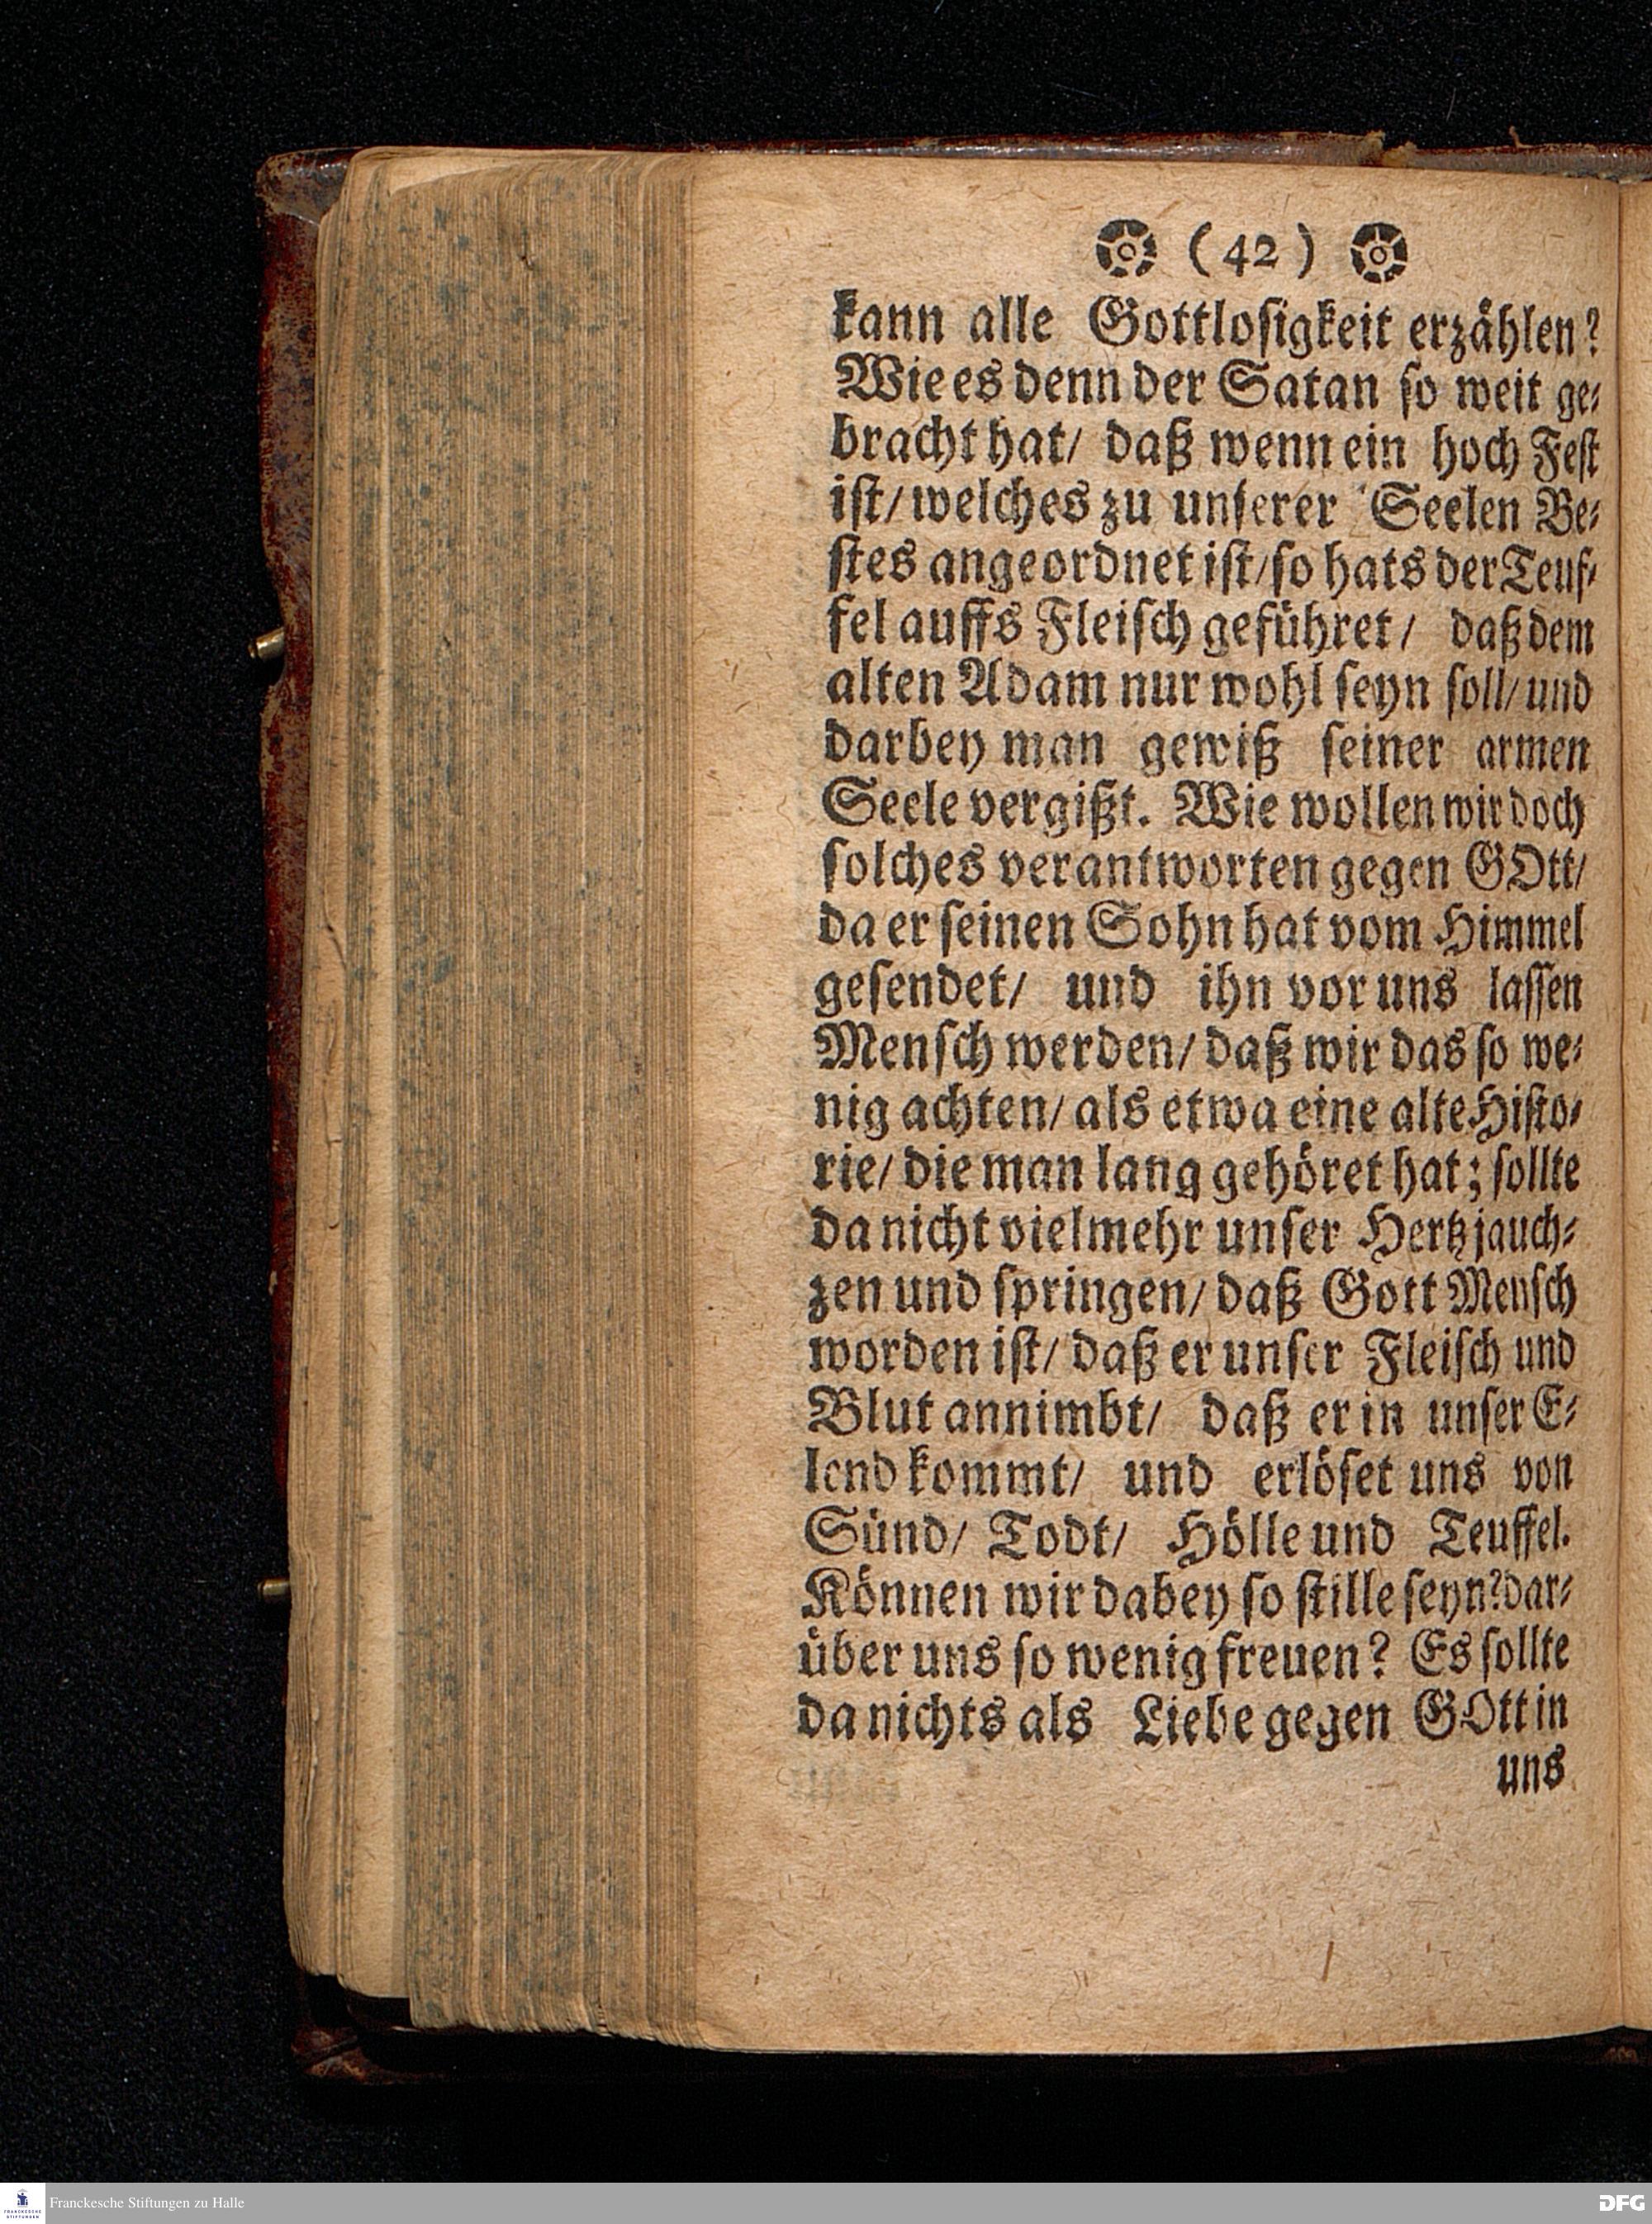 ( 42 )
kann alle Gottloſigkeit erzählen?
Wie es denn der Satan ſo weit ge⸗
bracht hat/ daß wenn ein hoch Feſt
iſt/ welches zu unſerer Seelen Be⸗
ſtes angeordnet iſt/ ſo hats der Teuf⸗
fel auffs Fleiſch geführet/ daß dem
alten Adam nur wohl ſeyn ſoll/ und
darbey man gewiß ſeiner armen
Seele vergißt. Wie wollen wir doch
ſolches verantworten gegen GOtt/
da er ſeinen Sohn hat vom Himmel
geſendet/ und ihn vor uns laſſen
Menſch werden/ daß wir das ſo we⸗
nig achten/ als etwa eine alte Hiſto⸗
rie/ die man lang gehöret hat; ſollte
da nicht vielmehr unſer Hertz jauch⸗
zen und ſpringen/ daß Gott Menſch
worden iſt/ daß er unſer Fleiſch und
Blut annimbt/ daß er in unſer E⸗
lend kommt/ und erlöſet uns von
Sünd/ Todt/ Hölle und Teuffel.
Können wir dabey ſo ſtille ſeyn? dar⸗
über uns ſo wenig freuen? Es ſollte
da nichts als Liebe gegen GOtt in
uns
FRANCKESCHE STIFTUNGEN
Franckesche Stiftungen zu Halle
DFG